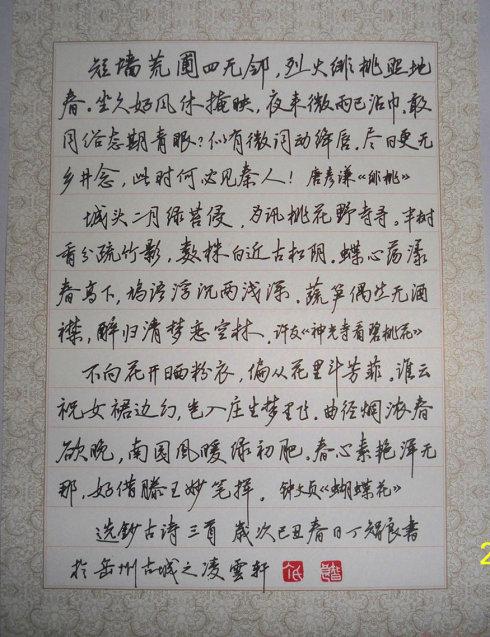 短墙荒圃四无邻，烈火绯桃照地
春。坐久好风休掩映，夜来微雨已沾巾。敢
同俗态期青眼？似有微词动绛唇。尽日更无
乡井念，此时何必见秦人！ 唐彦谦《绯桃》
城头二月绿苔侵，为讯桃花野寺寻。半树
看分疏竹影，数株白近古松阴。蝶心荡漾
春高下，鸠语浮沉雨浅深。蔬笋偶然无酒
襟，醉归清梦恋空林。许友《神光寺看碧桃花》
不向花开晒粉衣，偏从花里斗芳菲。谁云
祝女裙边幻，入庄生梦里飞。曲径烟浓春
欲晚，南园风暖绿初肥。春心素艳浑无
那，好借滕王妙笔挥。 钟文贞《蝴蝶花》
选钞古诗三首 岁次己丑春日丁智良书
於岳州古城之凌雲轩
2